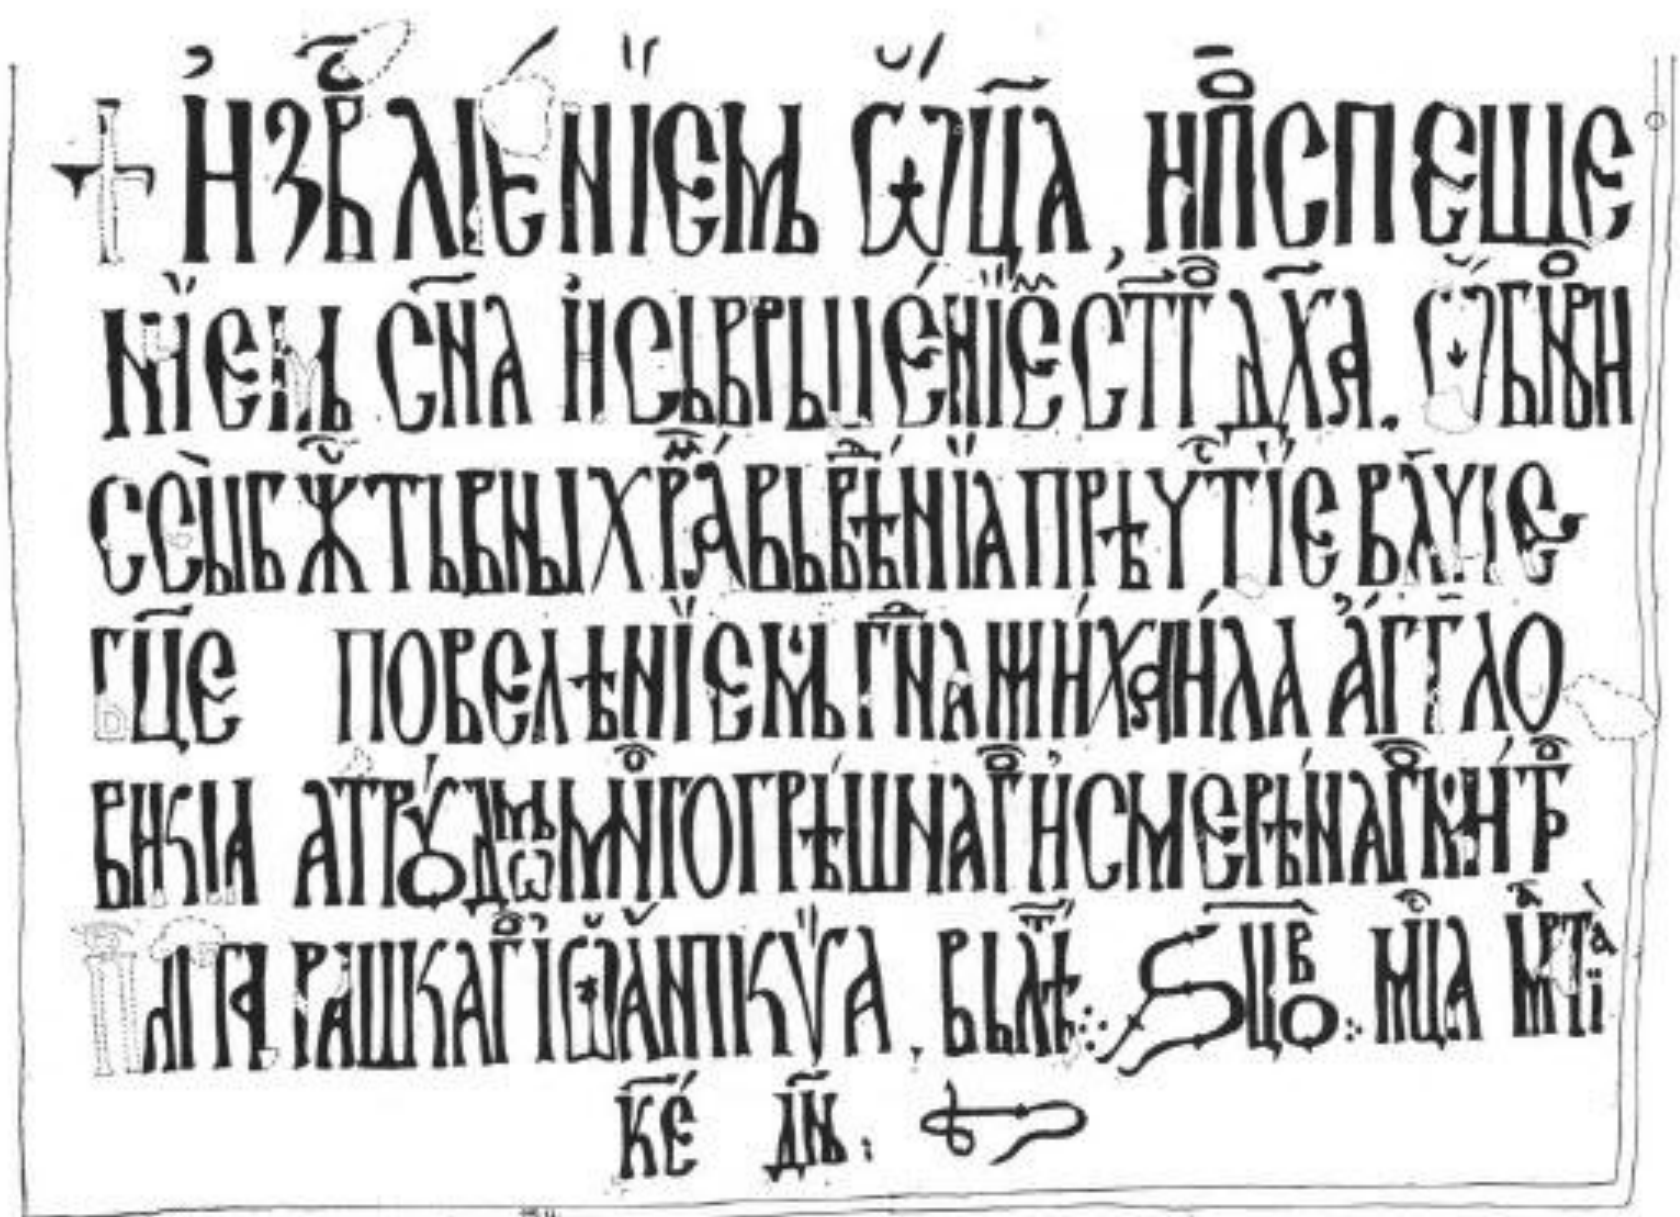 + Извлиенїемь ѿца, и поспеше
нїемь сн҃а и сьврьшенїемь ст҃го дх҃а. ѡбнови
се сы бж҃тьвны храмь вьвѣденїа прѣчтⷭ҇їе влⷣчїе
бц҃е повелѣнїемь гн҃а михаила аггло
викіа а трудѡмь многогрѣшнаго и смеренаго китро
п рашкаго їѡан кѵ а. вь лѣт ҂ꙅцв҃о. мц҃а марта ї
к҃е дн҃ь: